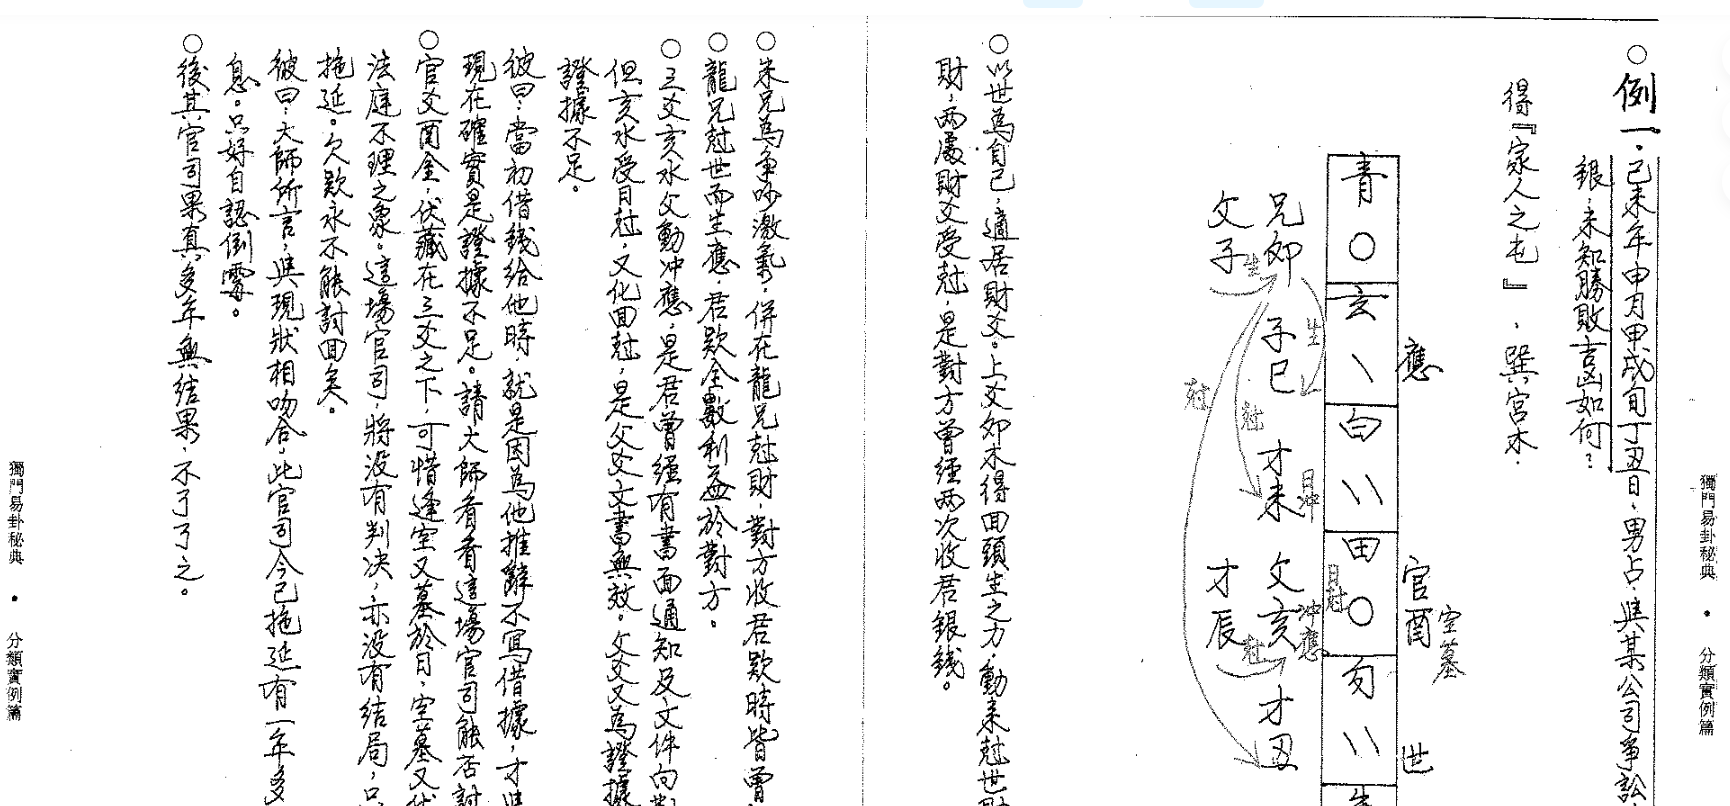 獨門易卦秘典 • 分類實例篇
○例一。己未年申月甲戌旬丁丑日，男占，與某公司爭訟
銀，未知勝敗吉凶如何？
得『家人之屯』，巽宮木．
應
官酉
空墓
世
青○
玄、
白〃
田○
勾〃
兄卯 子巳 才未 父亥 才丑
父子 才辰
生
生
尅
尅
日冲
日尅
冲應
尅
○以世為自己，適居財爻。上爻卯木得回頭生之力，動來尅世財
財，两處財爻受尅，是對方曾經两次收君銀錢。
○朱兄為爭吵激氣，併在龍兄尅財，對方收君款時皆曾
○龍兄尅世而生應，君款全數利益於對方。
○三爻亥水父動冲應，是君曾經有書面通知及文件向
但亥水受日尅，又化回尅，是父爻文書無效。父爻又為證據
證據不足。
彼曰：當初借錢給他時，就是因為他推辭不寫借據，才
現在確實是證據不足。請大師看看這場官司能否討
○官爻酉金，伏藏在三爻之下，可惜逢空又墓於日，空墓又伏
法庭不理之象。這場官司，將没有判决，亦没有結局，只
拖延。欠款永不能討回矣。
彼曰：大師所言，與現狀相吻合，此官司今已拖延有一年多
息。只好自認倒霉。
○後其官司果真多年無結果，不了了之。
獨門易卦秘典 • 分類實例篇